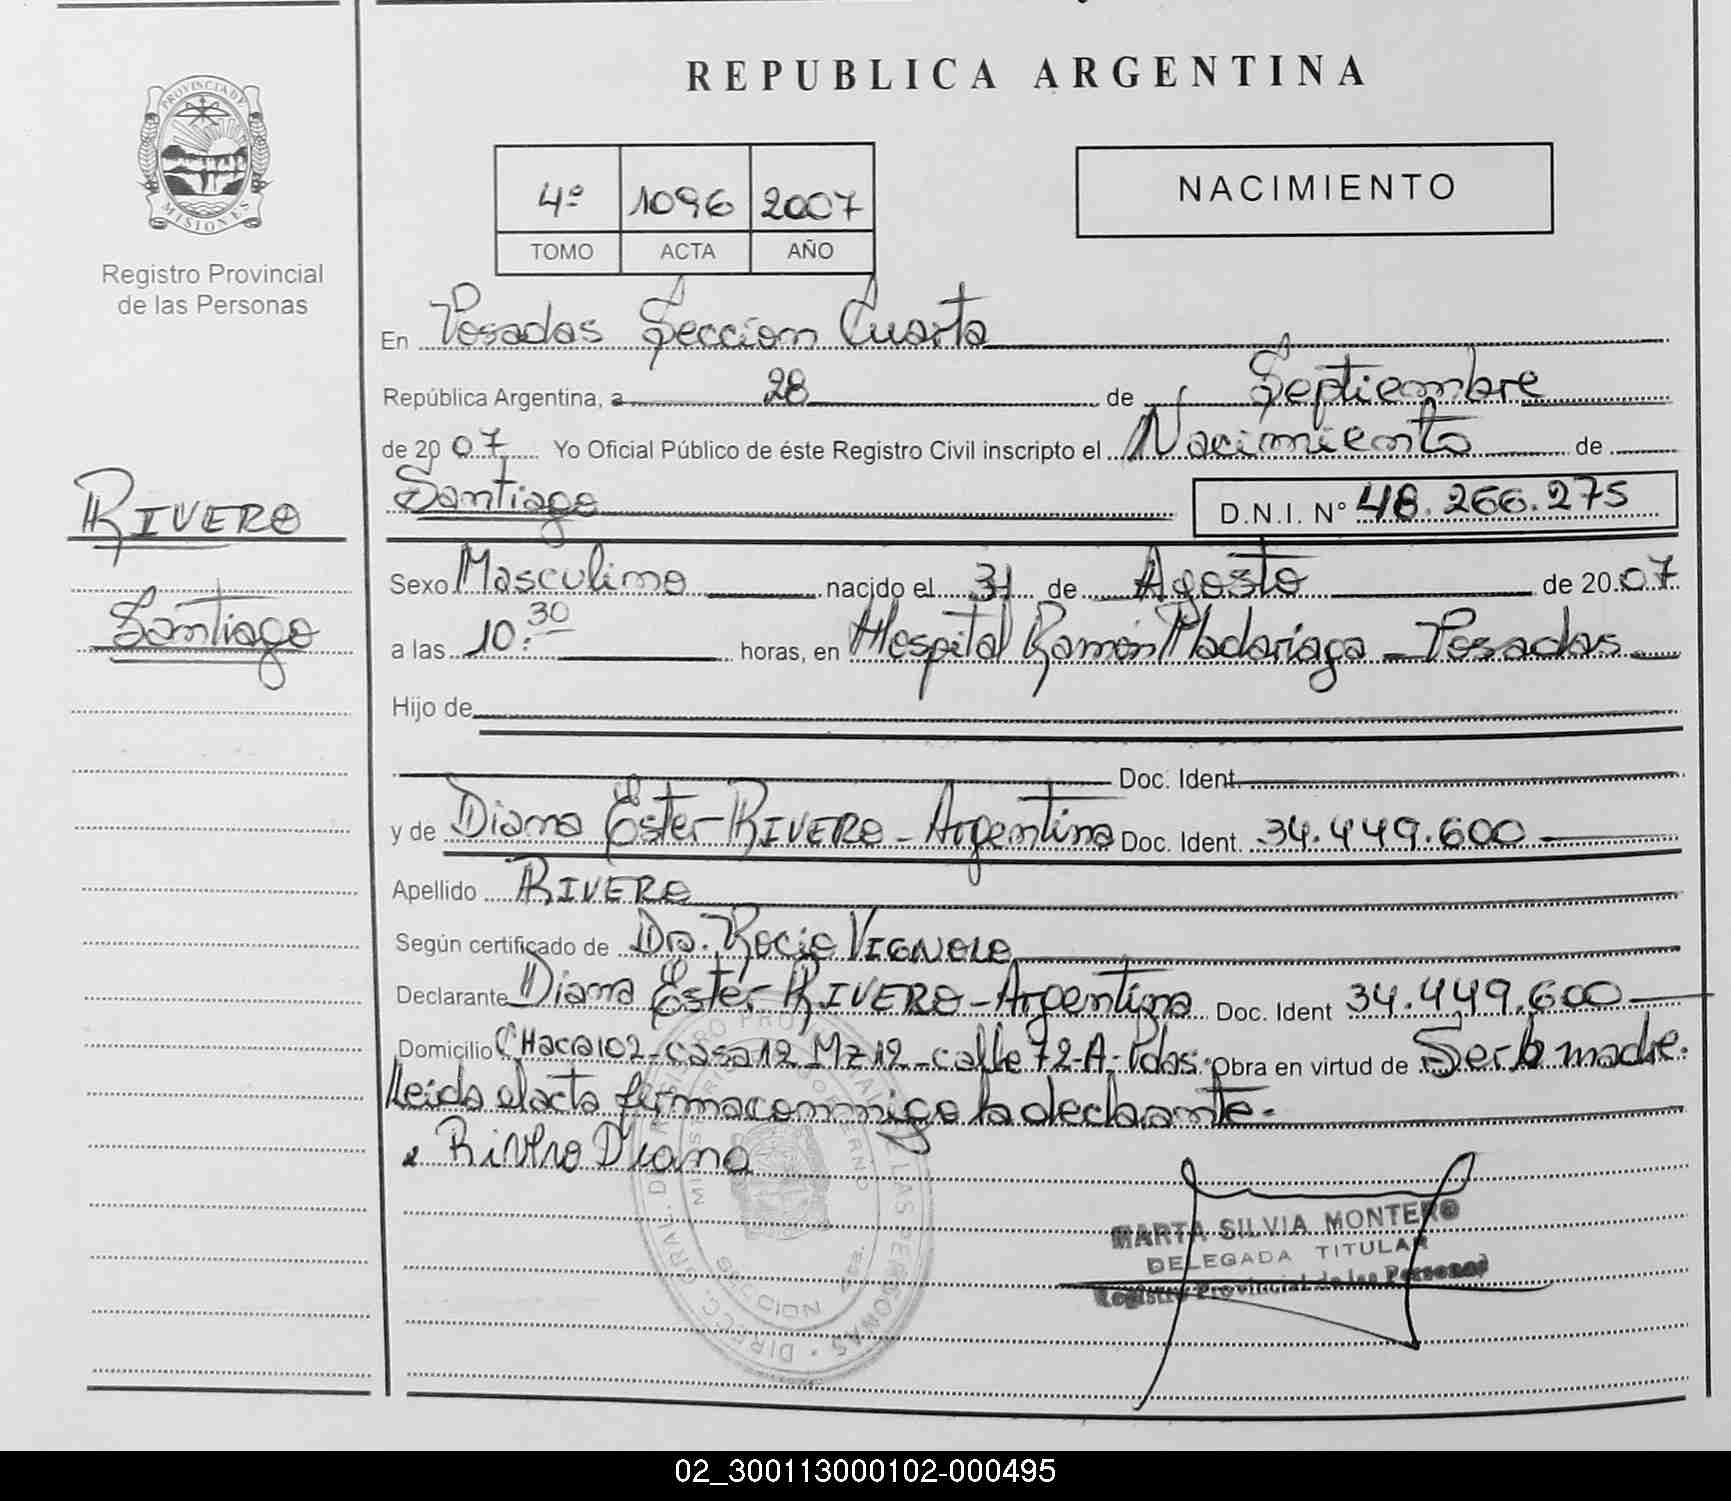 REPUBLICA ARGENTINA
PROVINCIA DE
MISIONES
Registro Provincial
de las Personas
4º 1096 2007
TOMO ACTA AÑO
NACIMIENTO
En Posadas Sección Cuarta
República Argentina, a 28 de Septiembre
de 2007 Yo Oficial Público de éste Registro Civil inscripto el Nacimiento de
RIVERO
Santiago
Santiago D.N.I. Nº 48.266.275
Sexo Masculino nacido el 31 de Agosto de 2007
a las 10:30 horas, en Hospital Ramón Madariaga - Posadas
Hijo de
Doc. Ident.
y de Diana Ester RIVERO - Argentina Doc. Ident. 34.449.600
Apellido RIVERO
Según certificado de Dra. Rocio VIGNOLO
Declarante Diana Ester RIVERO - Argentina Doc. Ident 34.449.600
Domicilio CHacra 102 - casa 12 Mz 12 - calle 72-A - Pdas. Obra en virtud de Ser la madre.
Leida el acta firma conmigo la declarante.
Rivero Diana
MARTA SILVIA MONTERO
DELEGADA TITULAR
Registro Provincial de las Personas
02_300113000102-000495